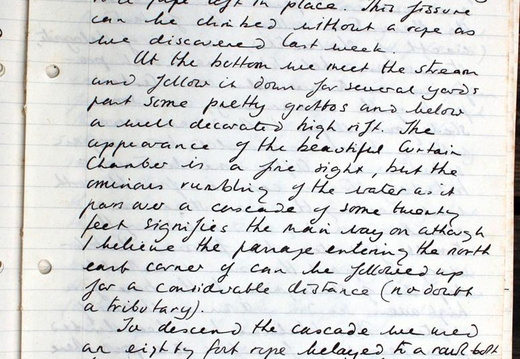 to a pipe left in place. This fissure
can be climbed without a rope as
we discovered last week.
At the bottom we meet the stream
and follow it down for several yards
past some pretty grottos and below
a well decorated high rift. The
appearance of the beautiful Curtain
Chamber is a fine sight, but the
ominous rumbling of the water as it
pass over a cascade of some twenty
feet signifies the main way on athough
I believe the passage entering the north
east corner of can be followed up
for a considerable distance (no doubt
a tributary).
To descend the cascade we used
an eighty foot rope belayed to a rawl bolt